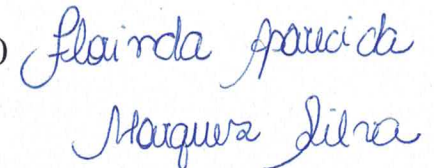 Florinda Aparecida
Marques Silva